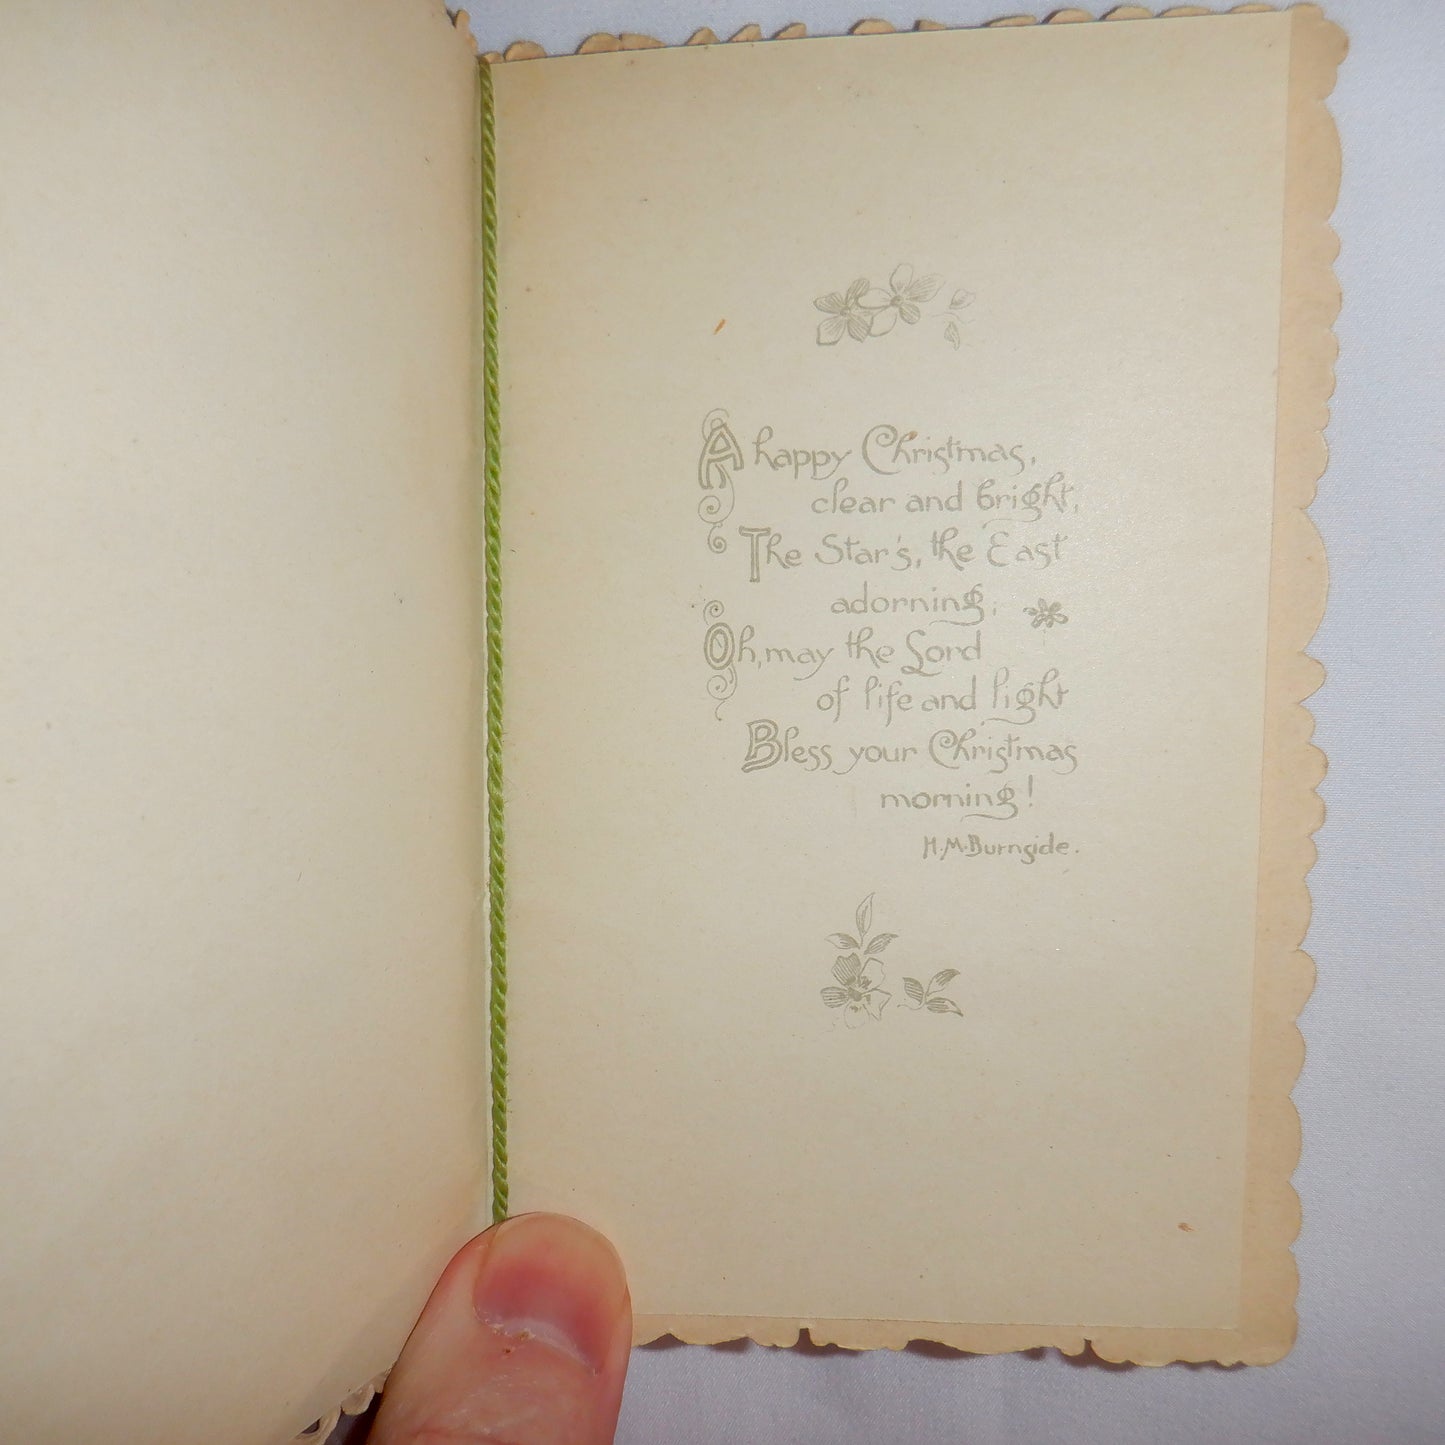 A happy Christmas,
clear and bright,
The Star's, the East
adorning;
Oh, may the Lord
of life and light
Bless your Christmas
morning!
H.M.Burnside.